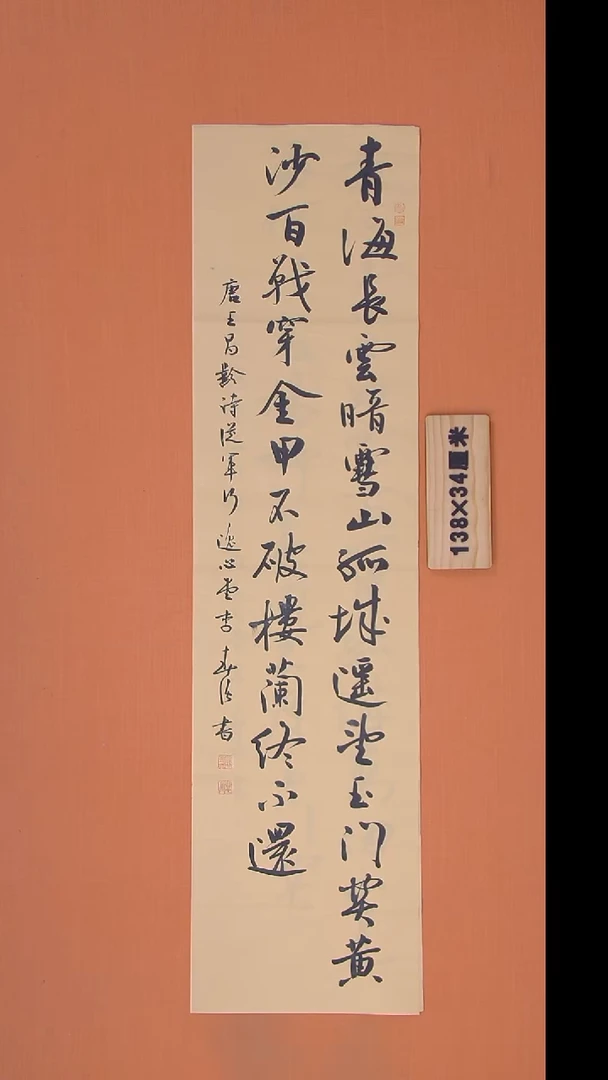 青海長雲暗雪山孤城遥望玉门关黄
沙百戰穿金甲不破樓蘭終不還
唐王昌齡詩從軍行 心堂李 書
138×34厘米